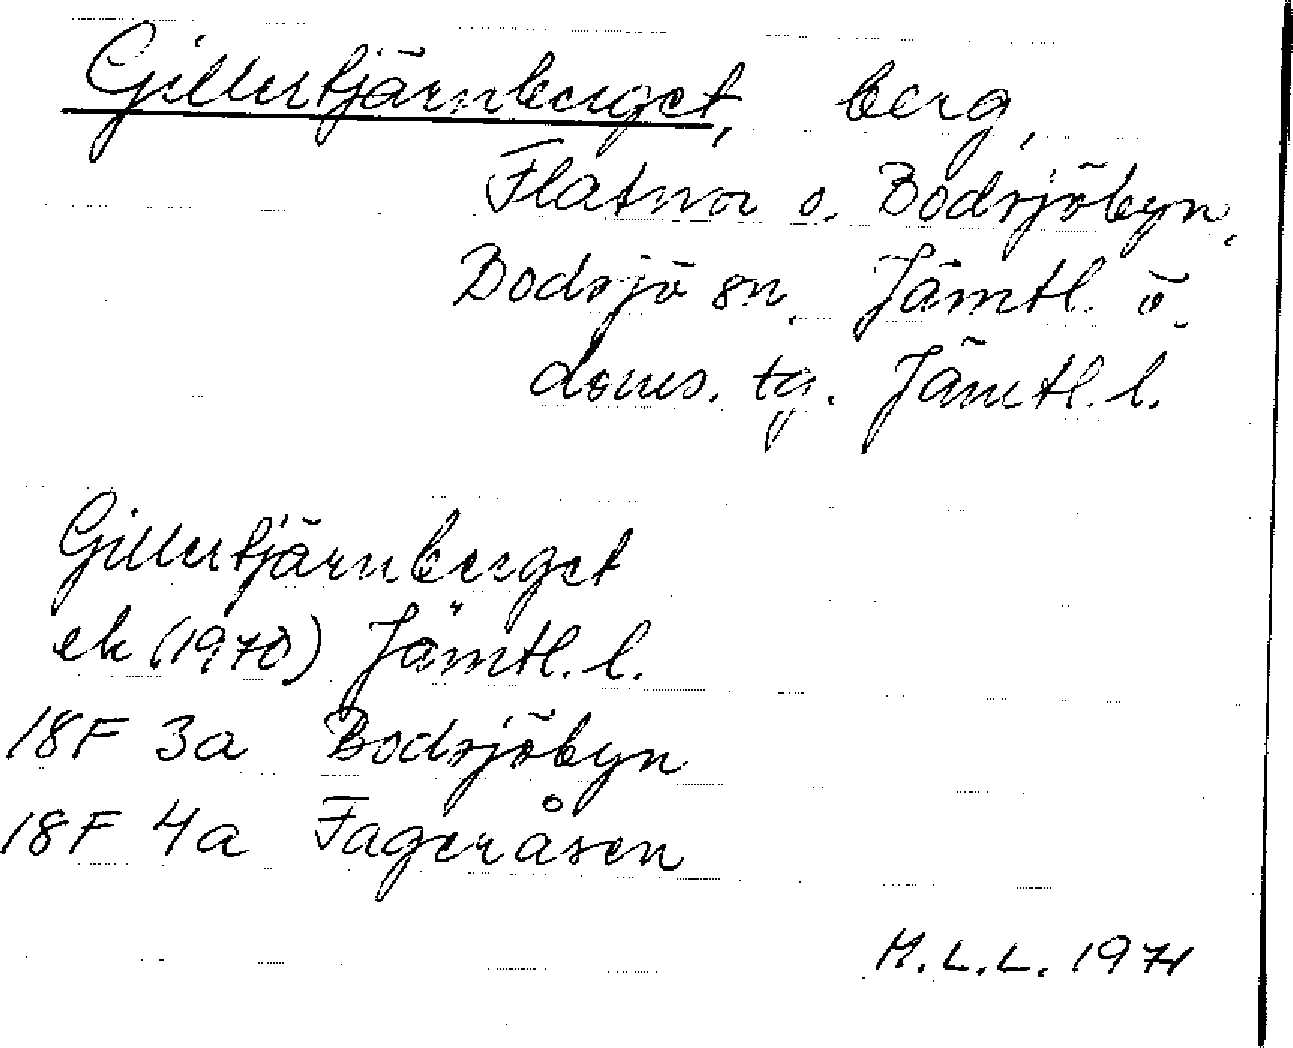 Gillertjärnberget, berg,
Flatnor o. Bodsjöbyn,
Bodsjö sn, Jämtl. ö.
doms. tg. Jämtl. l.
Gillertjärnberget
ek (1970) Jämtl. l.
18F 3a Bodsjöbyn
18F 4a Fageråsen
M.L.L. 1971